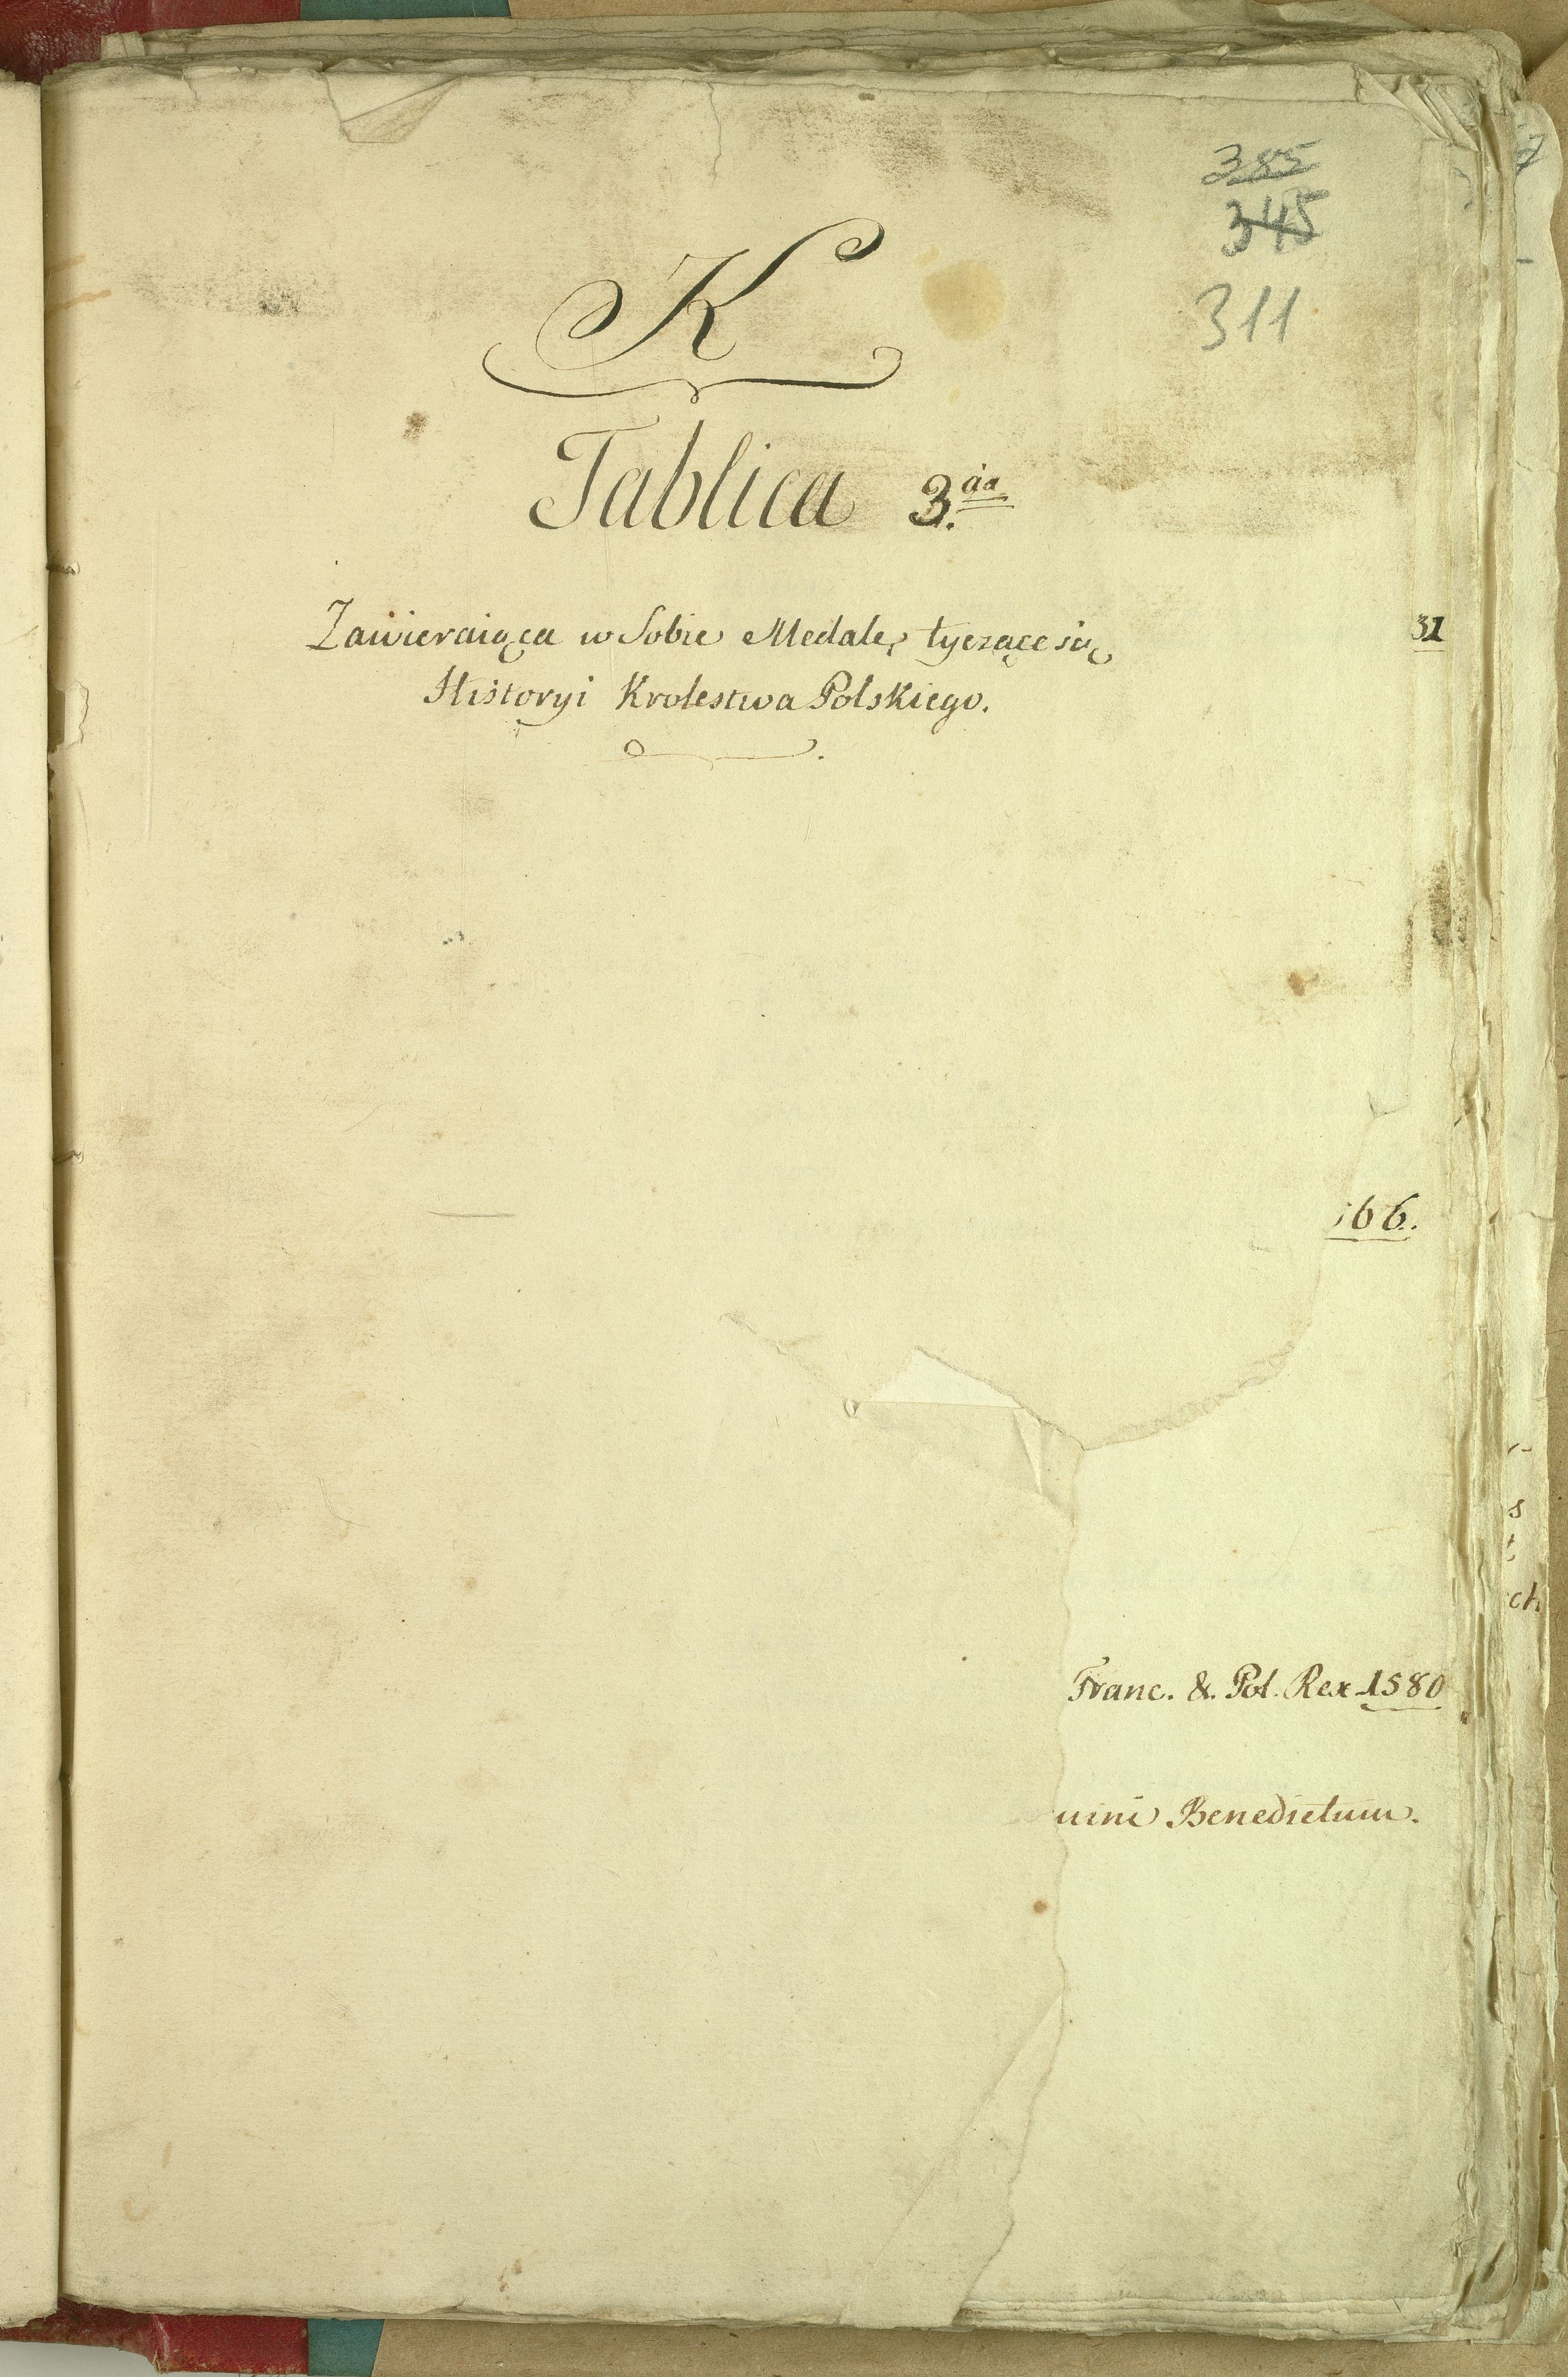 385
345
311
K
Tablica 3.cia
Zawieraiąca w Sobie Medale, tyczące się
Historyi Krolestwa Polskiego.
31
66.
Franc. & Pol. Rex 1580
Benedictum.
s
ch